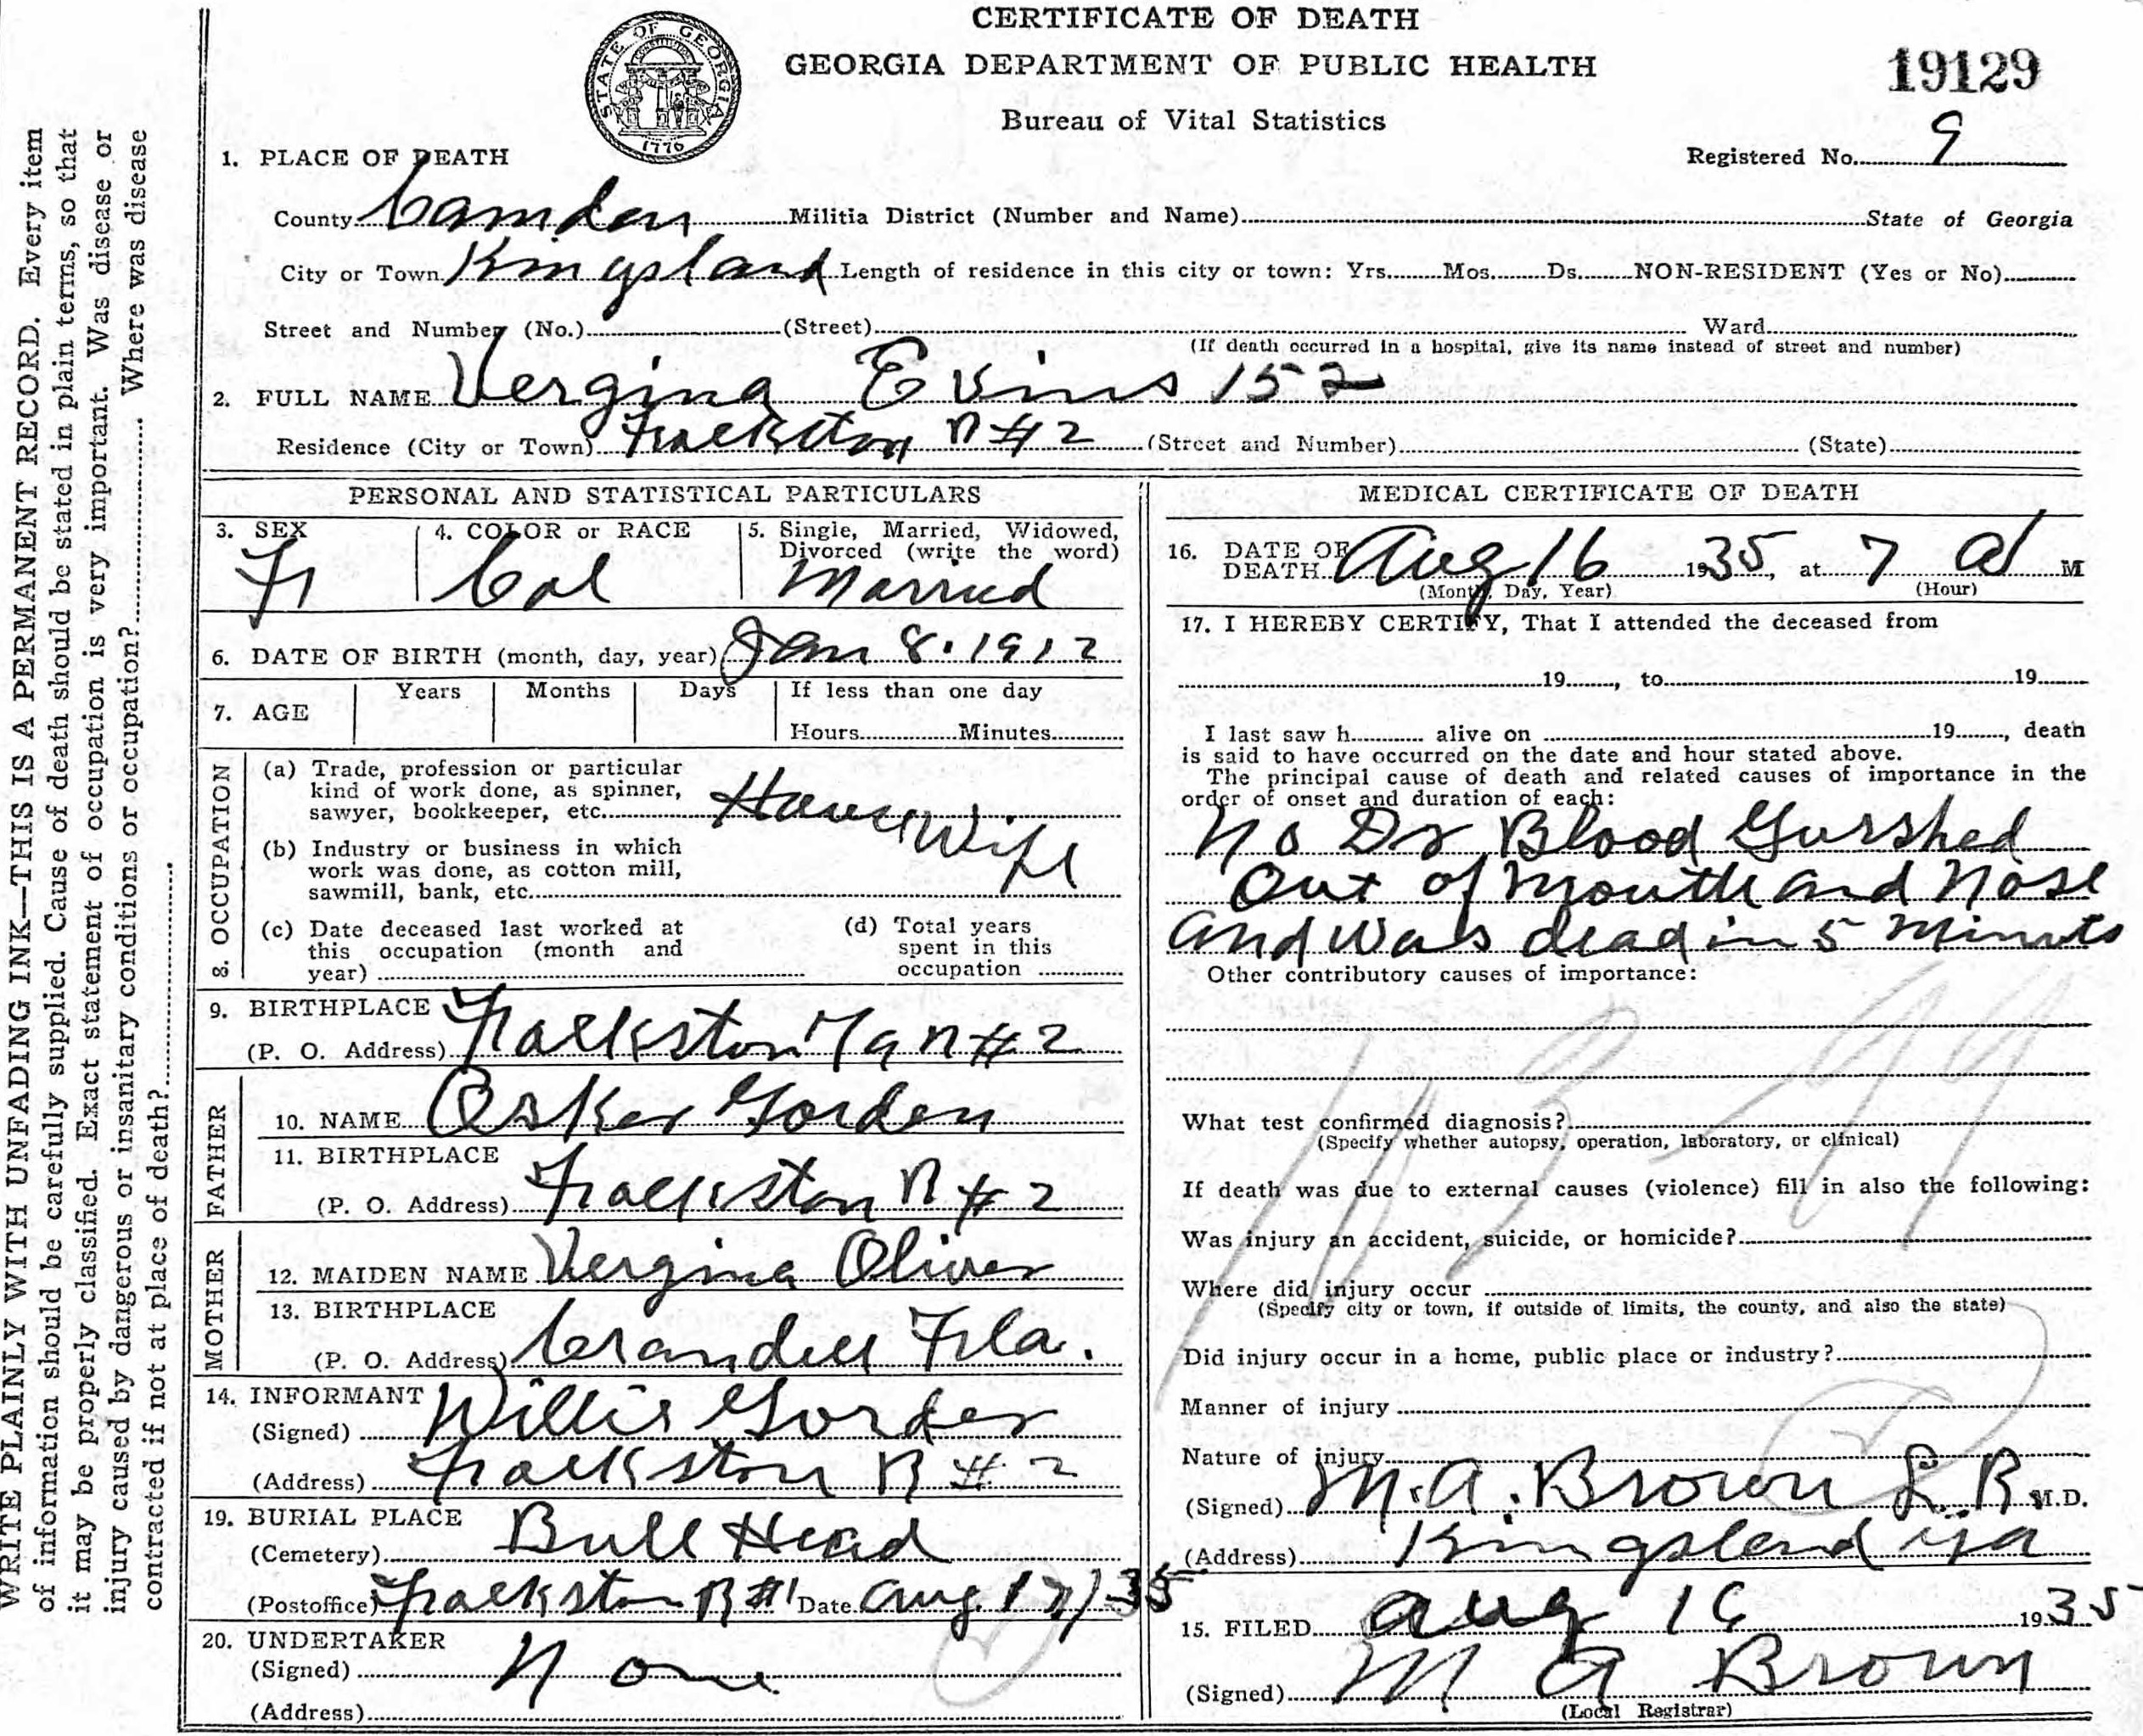 CERTIFICATE OF DEATH
GEORGIA DEPARTMENT OF PUBLIC HEALTH
Bureau of Vital Statistics
19129
STATE OF GEORGIA
1776
Registered No. 9
1. PLACE OF DEATH
County Camden Militia District (Number and Name) State of Georgia
City or Town Kingsland Length of residence in this city or town: Yrs. Mos. Ds. NON-RESIDENT (Yes or No)
Street and Number (No.) (Street) Ward
(If death occurred in a hospital, give its name instead of street and number)
2. FULL NAME Vergina Evins 152
Residence (City or Town) Folkston R #2 (Street and Number) (State)
PERSONAL AND STATISTICAL PARTICULARS
3. SEX 4. COLOR or RACE 5. Single, Married, Widowed,
Divorced (write the word)
F Col Married
6. DATE OF BIRTH (month, day, year) Jan 8. 1912
7. AGE Years Months Days If less than one day
Hours Minutes
8. OCCUPATION
(a) Trade, profession or particular
kind of work done, as spinner,
sawyer, bookkeeper, etc. House Wife
(b) Industry or business in which
work was done, as cotton mill,
sawmill, bank, etc.
(c) Date deceased last worked at
this occupation (month and
year)
(d) Total years
spent in this
occupation
9. BIRTHPLACE
(P. O. Address) Folkston Ga R #2
FATHER
10. NAME Osker Gorden
11. BIRTHPLACE
(P. O. Address) Folkston R #2
MOTHER
12. MAIDEN NAME Vergina Oliver
13. BIRTHPLACE
(P. O. Address) Crandell Fla.
14. INFORMANT
(Signed) Willis Gorden
(Address) Folkston R #2
19. BURIAL PLACE
(Cemetery) Bull Head
(Postoffice) Folkston R #1 Date Aug. 17/35
20. UNDERTAKER
(Signed) None
(Address)
MEDICAL CERTIFICATE OF DEATH
16. DATE OF
DEATH Aug 16 1935, at 7 a M
(Month, Day, Year) (Hour)
17. I HEREBY CERTIFY, That I attended the deceased from
19 , to 19
I last saw h alive on 19 , death
is said to have occurred on the date and hour stated above.
The principal cause of death and related causes of importance in the
order of onset and duration of each:
No Dr Blood Gurshed
Out of Mouth and Nose
and was dead in 5 Minuts
Other contributory causes of importance:
What test confirmed diagnosis?
(Specify whether autopsy, operation, laboratory, or clinical)
If death was due to external causes (violence) fill in also the following:
Was injury an accident, suicide, or homicide?
Where did injury occur
(Specify city or town, if outside of limits, the county, and also the state)
Did injury occur in a home, public place or industry?
Manner of injury
Nature of injury
(Signed) M. A. Brown L. R. M.D.
(Address) Kingsland Ga
15. FILED Aug 16 1935
(Signed) M A Brown
(Local Registrar)
WRITE PLAINLY WITH UNFADING INK—THIS IS A PERMANENT RECORD. Every item
of information should be carefully supplied. Cause of death should be stated in plain terms, so that
it may be properly classified. Exact statement of occupation is very important. Was disease or
injury caused by dangerous or insanitary conditions or occupation? Where was disease
contracted if not at place of death?